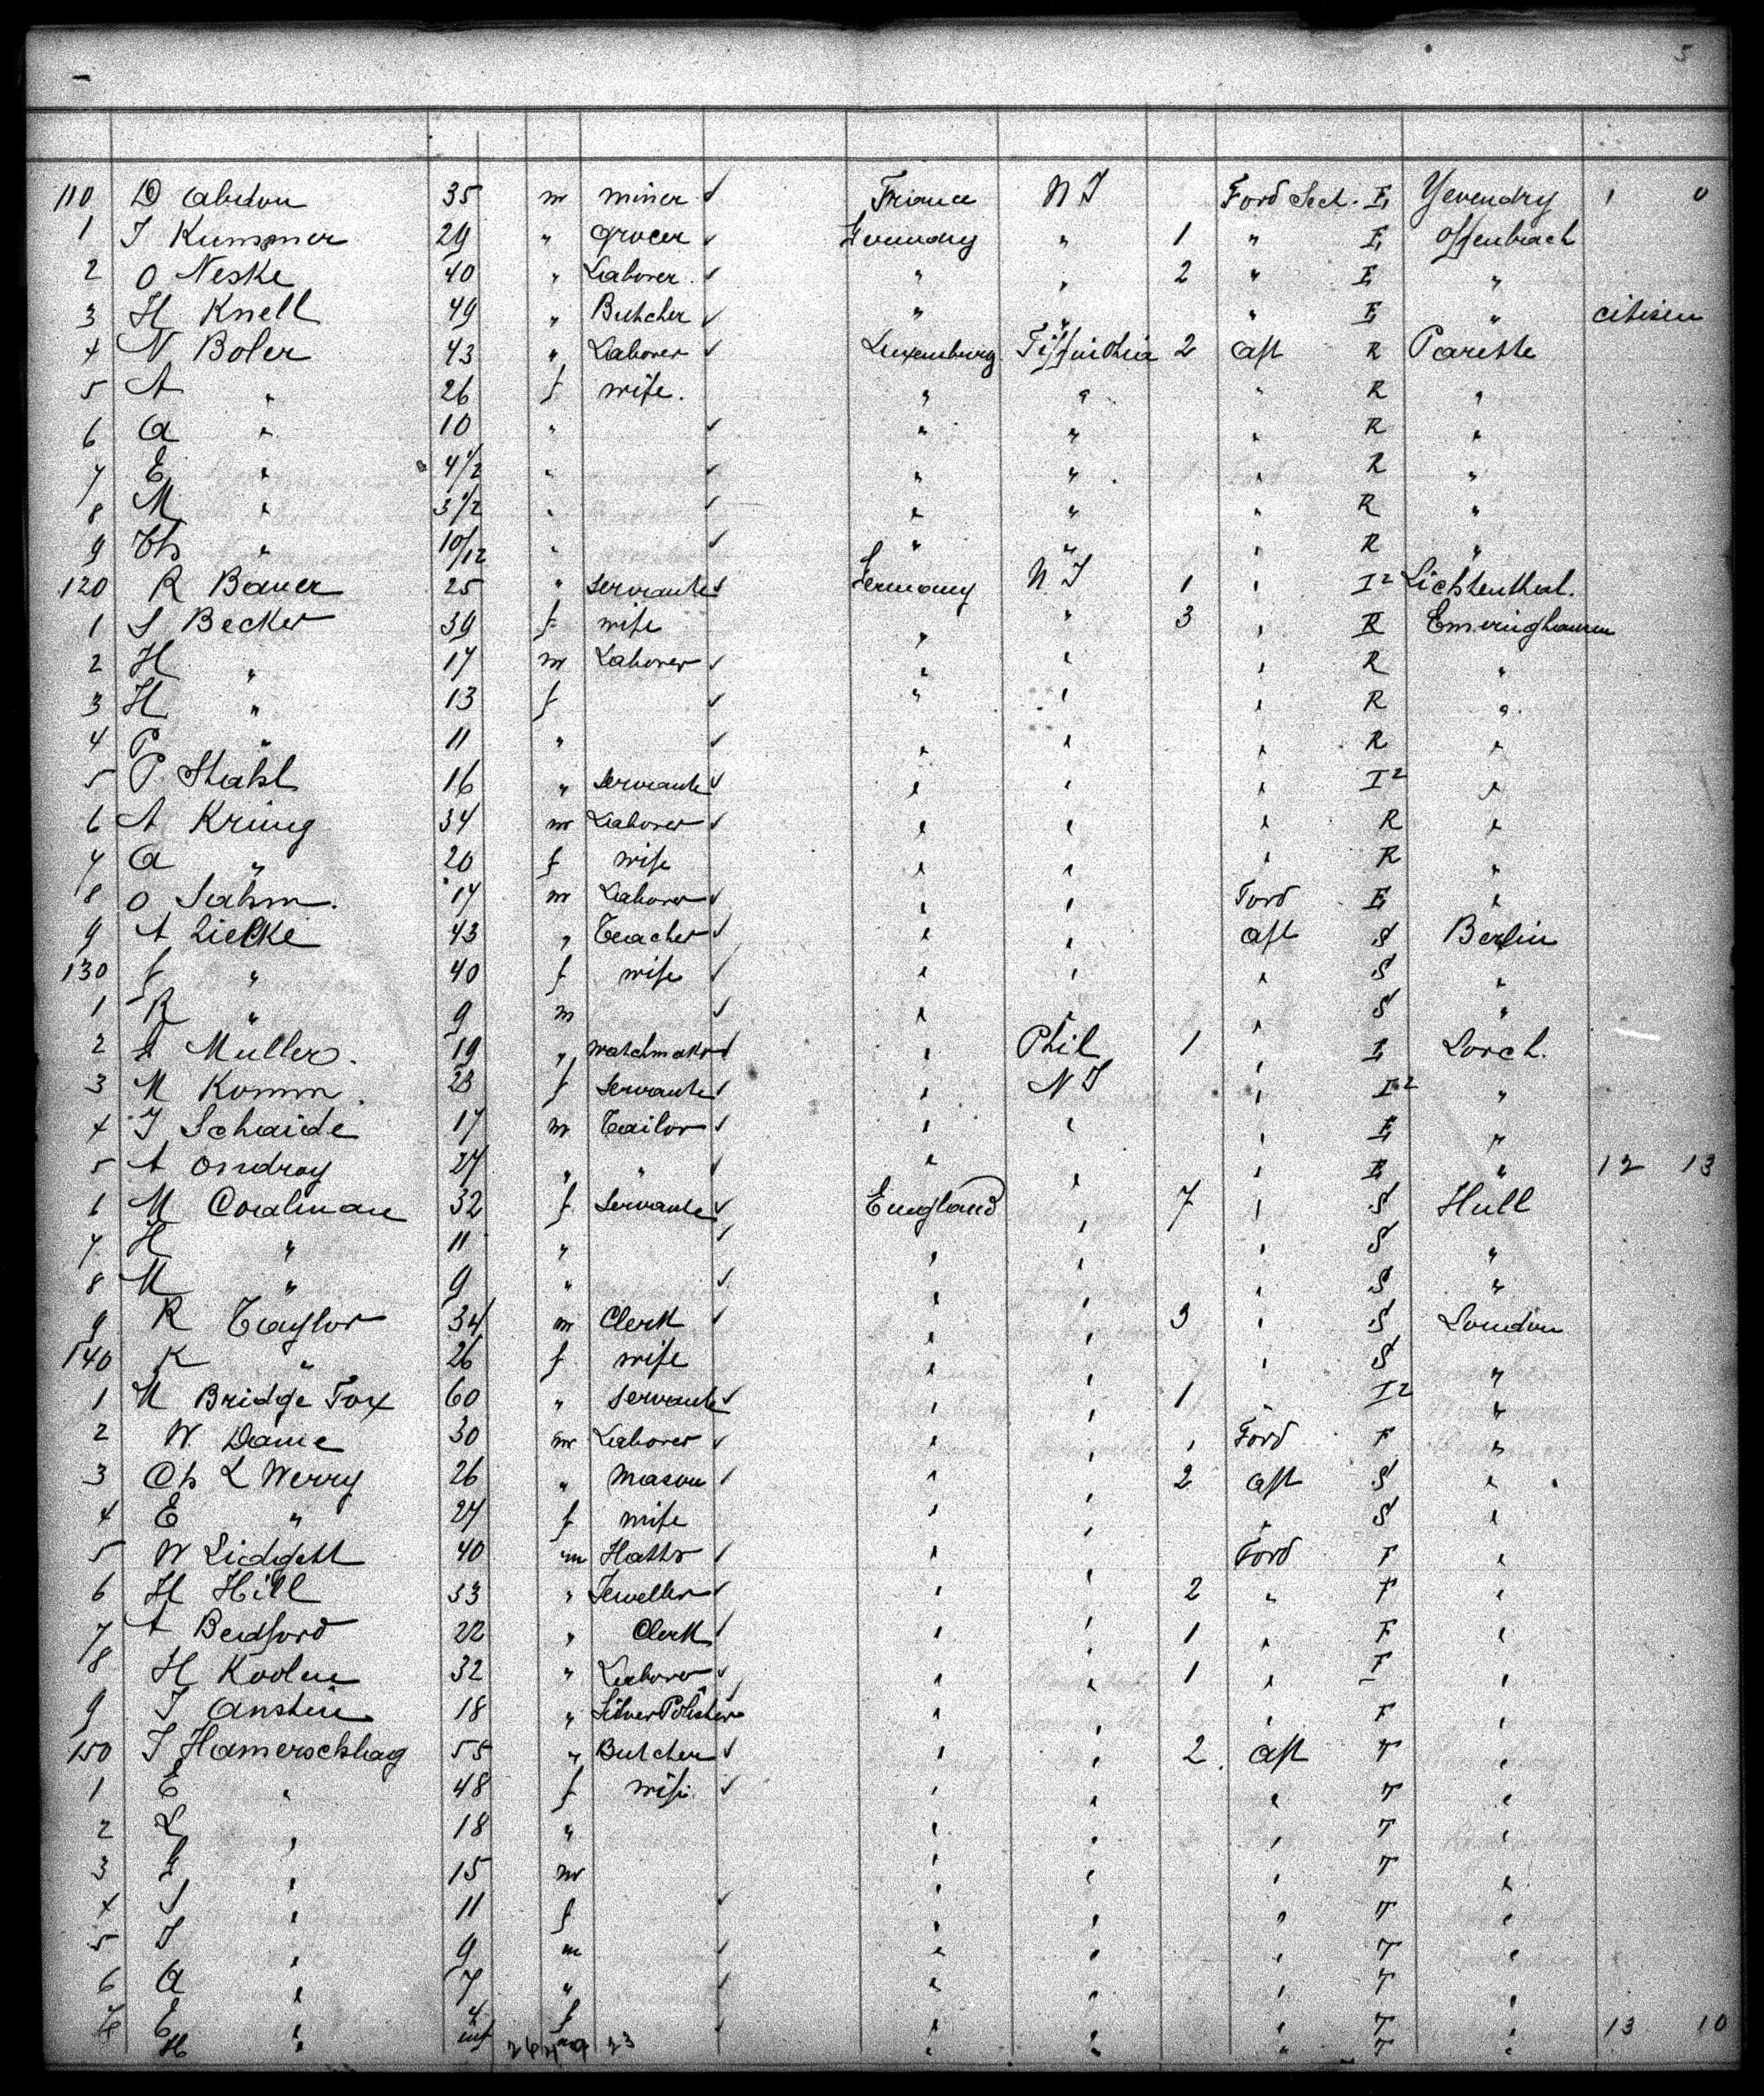 5
110 D Abdon 35 m miner ✓ France N J Ford Sect. E Yevendry 1 0
1 J Kummer 29 " grocer ✓ Germany " 1 " E Offenbach
2 O Neske 40 " Laborer ✓ " " 2 " E "
3 H Knell 49 " Butcher ✓ " " " E " citisen
4 N Boler 43 " Laborer ✓ Luxemburg 2 aft R Parette
5 A " 26 f wife. " " " R "
6 A " 10 " ✓ " " " R "
7 E " 4 1/2 " ✓ " " " R "
8 M " 3 1/2 " ✓ " " " R "
9 Ch " 10/12 " ✓ " " " R "
120 R Bauer 25 " servante ✓ Germany N J 1 " I2 Lichtenthal.
1 S Becker 39 f wife " " 3 " R Emeringhausen
2 H " 17 m Laborer ✓ " " " R "
3 H " 13 f ✓ " " " R "
4 P " 11 " ✓ " " " R "
5 P Stahl 16 " servante ✓ " " " I2 "
6 A Kring 34 m Laborer ✓ " " " R "
7 A " 20 f wife " " " R "
8 O Sahm. 17 m Laborer ✓ " " Ford E "
9 A Liepke 43 " Teacher ✓ " " aft S Berlin
130 f " 40 f wife ✓ " " " S "
1 R " 9 m ✓ " " " S "
2 A Muller. 19 " watchmaker ✓ " Phil 1 " E Lorch.
3 M Komm. 23 f servante ✓ " N J " I2 "
4 J Schaide 17 m Tailor ✓ " " " E "
5 A Ondray 27 " " ✓ " " " E " 12 13
6 M Coalman 32 f servante ✓ England " 7 " S Hull
7 H " 11 " ✓ " " " S "
8 M " 9 " ✓ " " " S "
9 R Taylor 34 m Clerk ✓ " " 3 " S London
140 K " 26 f wife " " " S "
1 M Bridge Fox 60 " servante ✓ " " 1 " I2 "
2 W. Dame 30 m Laborer ✓ " " " Ford F "
3 Ch L Werry 26 " mason ✓ " " 2 aft S "
4 E " 27 f wife " " " S "
5 W Lidgett 40 m Hatter ✓ " " Ford F "
6 H Hill 33 " Jeweller ✓ " " 2 " F "
7 A Bedford 22 " Clerk ✓ " " 1 " F "
8 H Koolen 32 " Laborer ✓ " " 1 " F "
9 J Anstin 18 " Silver Polisher " " " F "
150 J Hamerschlag 55 " Butcher ✓ " " 2 aft T "
1 E " 48 f wife ✓ " " " T "
2 L " 18 " " " " T "
3 " 15 m " " " T "
4 S " 11 f ✓ " " " T "
5 J " 9 m ✓ " " " T "
6 A " 7 " ✓ " " " T "
7 E " 4 f ✓ " " " T " 13 10
8 H " inf " " " T "
23